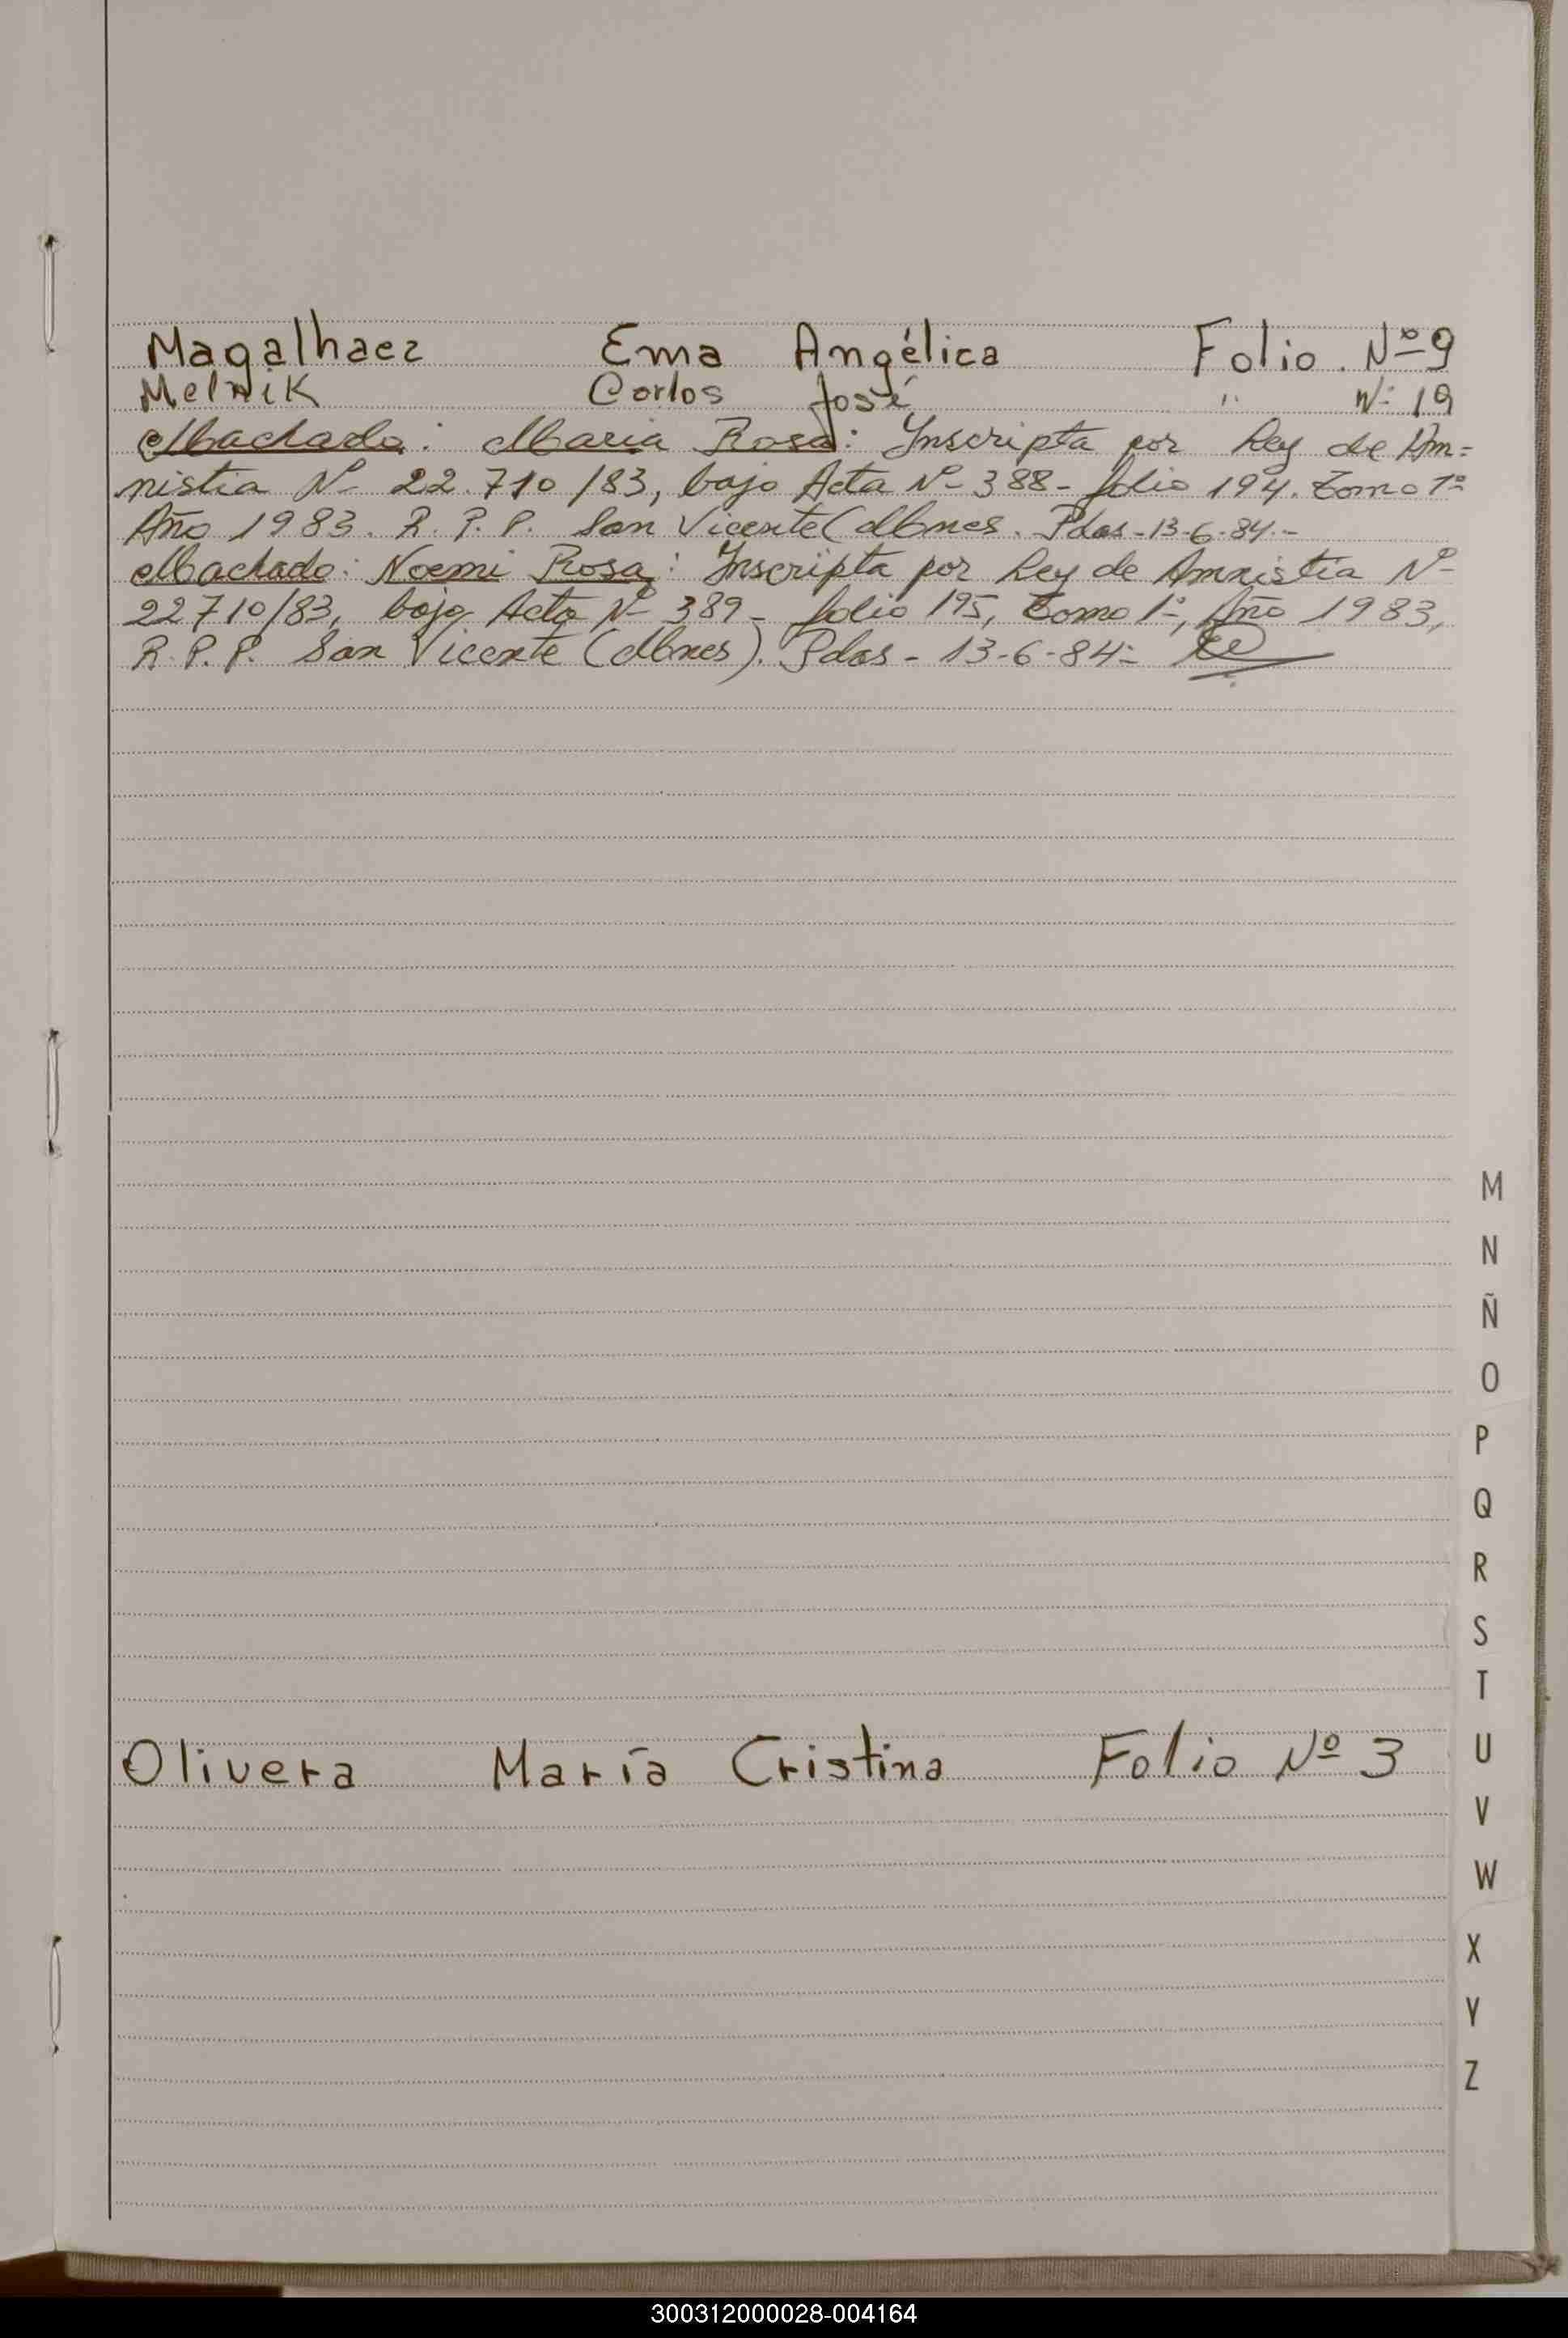 Magalhaez Ema Angélica Folio. Nº 9
Melnik Carlos José " Nº 19
Machado: Maria Rosa: Inscripta por Ley de Am=
nistia Nº 22.710/83, bajo Acta Nº 388- folio 194. Tomo 1º
Año 1983. R. P. P. San Vicente (Mnes. Pdas-13-6-84.-
Machado: Noemi Rosa: Inscripta por Ley de Amnistia Nº
22710/83, bajo Acta Nº 389- folio 195, Tomo 1º, Año 1983,
R. P. P. San Vicente (Mnes). Pdas - 13-6-84-
M
N
Ñ
O
P
Q
R
S
T
Olivera María Cristina Folio Nº 3
U
V
W
X
Y
Z
300312000028-004164